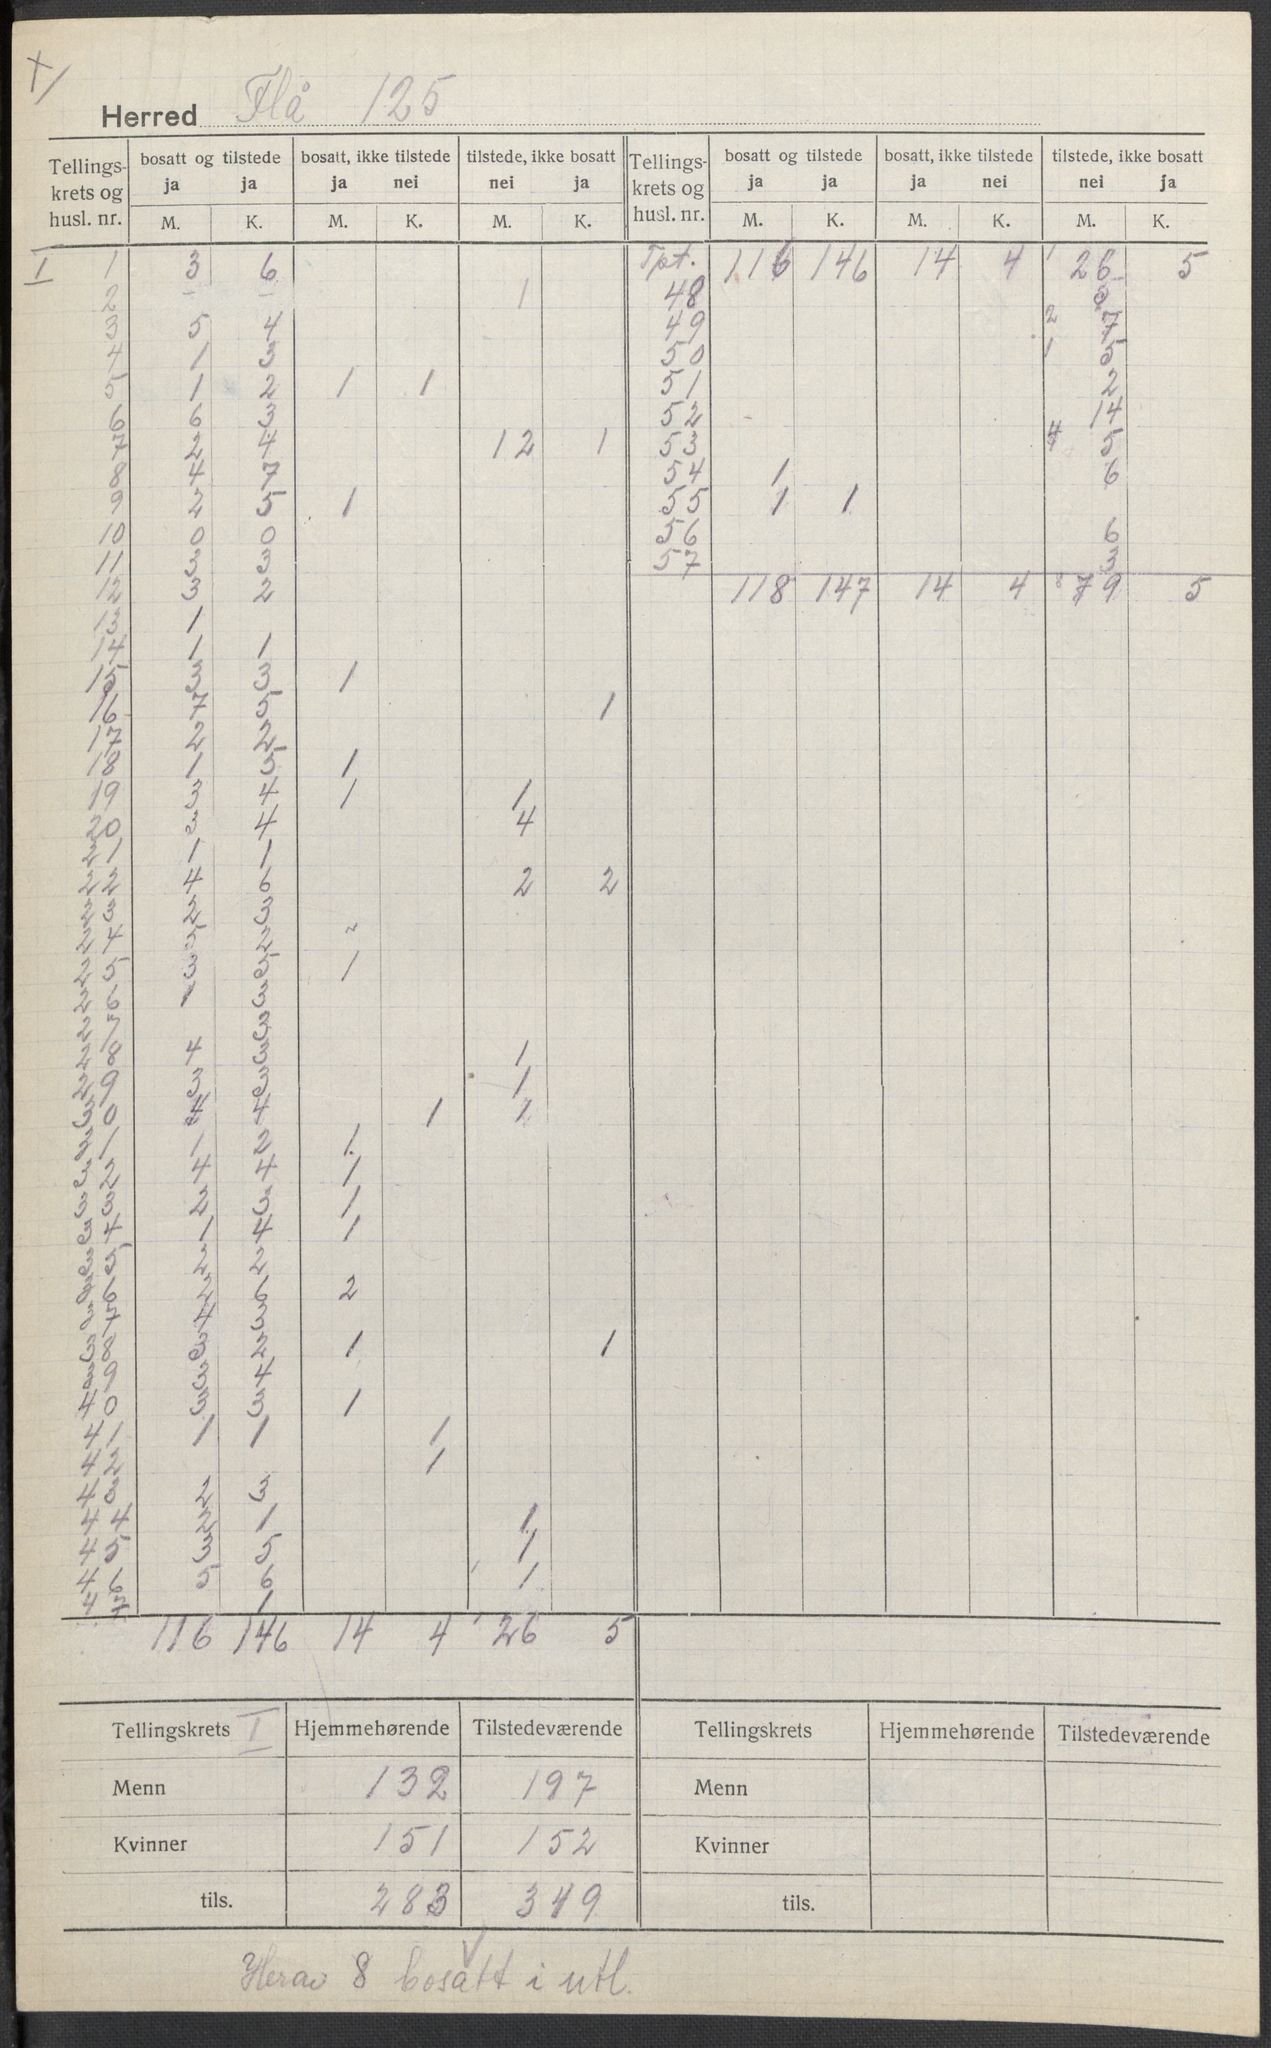 Herred Flå 125
Tellings-krets og husl. nr. | bosatt og tilstede ja ja | bosatt, ikke tilstede ja nei | tilstede, ikke bosatt nei ja | Tellings-krets og husl. nr. | bosatt og tilstede ja ja | bosatt, ikke tilstede ja nei | tilstede, ikke bosatt nei ja
M. K. M. K. M. K. M. K. M. K. M. K.
I 1 3 6 Tpt. 116 146 14 4 1 26 5
2 - - 1 48
3 5 4 49 2 7
4 1 3 50 1 5
5 1 2 1 1 51 2
6 6 3 52 14
7 2 4 12 1 53 4 5
8 4 7 54 1 6
9 2 5 1 55 1 1
10 0 0 56 6
11 3 3 57 3
12 3 2 118 147 14 4 8 79 5
13 1
14 1 1
15 3 3 1
16 7 5 1
17 2 2
18 1 5 1
19 3 4 1 1
20 3 4 4
21 1 1
22 4 6 2 2
23 2 3
24
25
26
27
28 4 3 1
29 3 3 1
30 4 1 1
31 1 2 1
32 4 4 1
33 2 3 1
34 1 4 1
35 2 2
36 2 6 2
37
38 3 2 1 1
39 3 4
40 3 3 1
41 1 1 1
42 1
43 2 3
44 2 1 1
45 3 5 1
46 5 6 1 1
47 1
116 146 14 4 1 26 5
Tellingskrets I Hjemmehørende Tilstedeværende Tellingskrets Hjemmehørende Tilstedeværende
Menn 132 197 Menn
Kvinner 151 152 Kvinner
tils. 283 349 tils.
Herav 8 bosatt i utl.